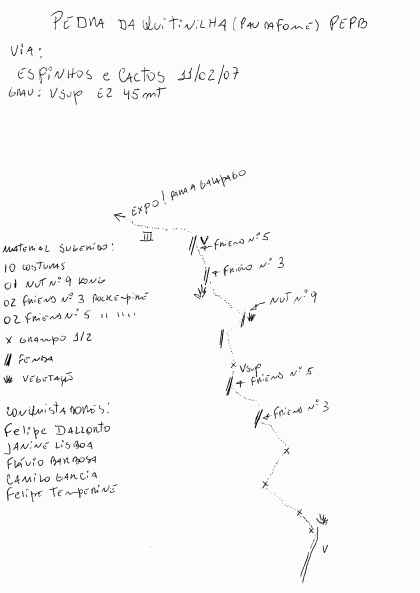 PEDRA DA QUITINILHA (PAU DA FOME) PEPB
VIA:
ESPINHOS e CACTOS 11/02/07
GRAU: Vsup E2 45mT
← EXPO! PARA A GALAPAGO
III
V
← FRIEND Nº 5
← FRIEND Nº 3
MATERIAL SUGERIDO:
10 COSTURAS
01 NUT Nº 9 KONG
02 FRIEND Nº 3 ROCKEMPIRE
02 FRIEND Nº 5 '' '' ''
X GRAMPO 1/2
// FENDA
VEGETAÇÃO
← NUT Nº 9
Vsup
← FRIEND Nº 5
← FRIEND Nº 3
CONQUISTADORES:
Felipe DALLORTO
JANINE LISBOA
FLÁVIO BARBOSA
CAMILO GARCIA
Felipe TEMPERINE
V